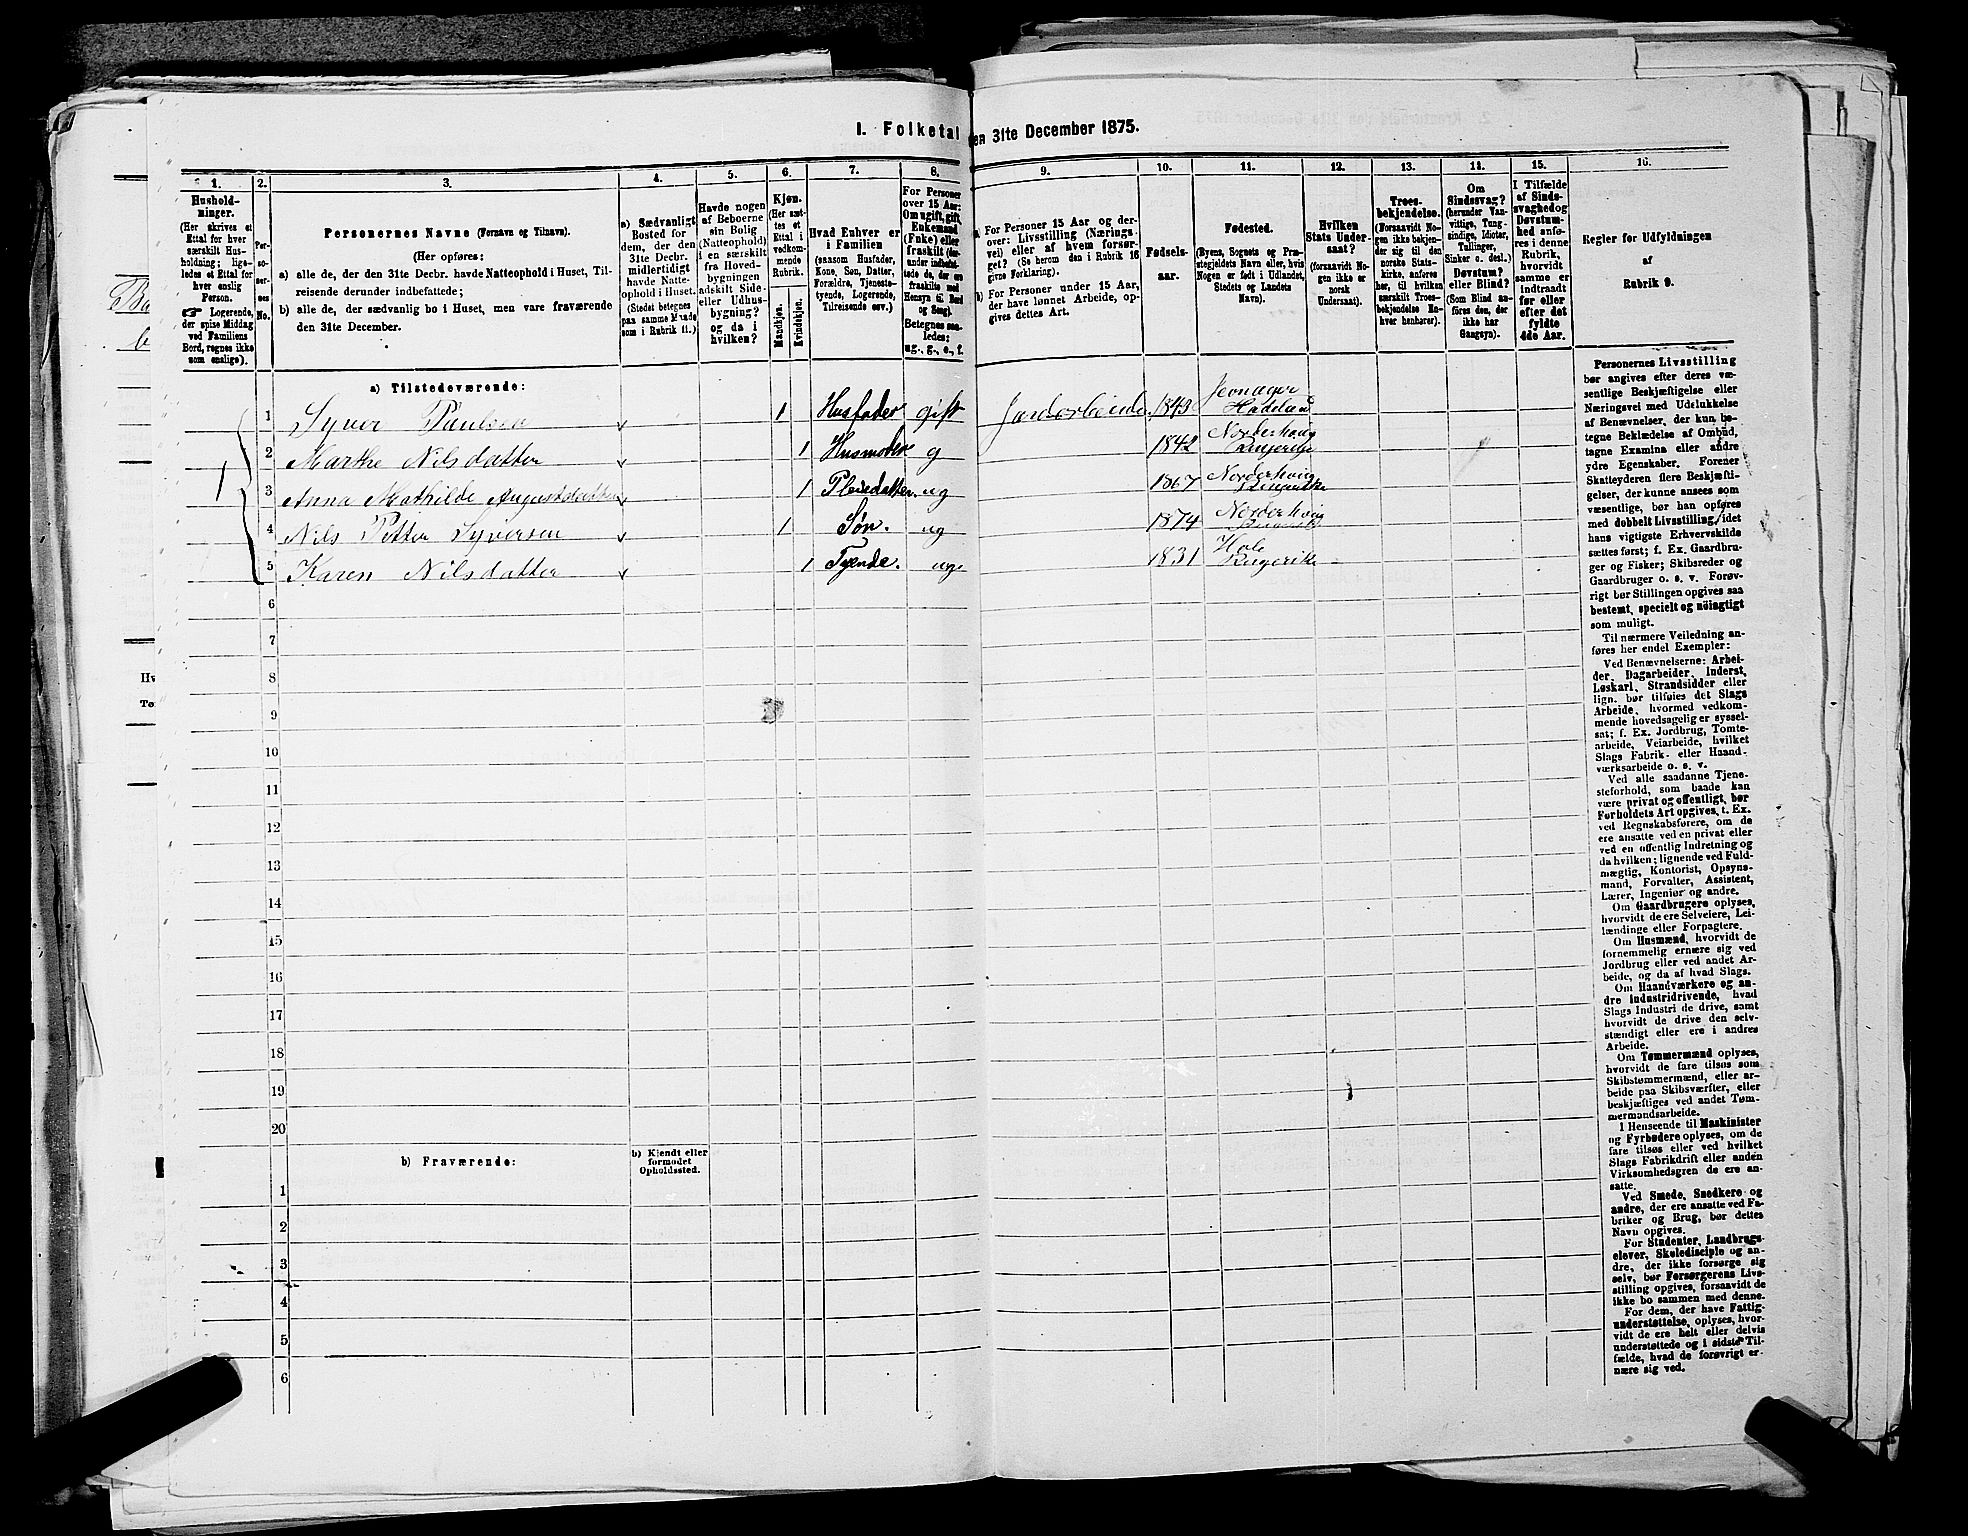 I. Folketal den 31te December 1875.
1.
2.
3.
4.
5.
6.
7.
8.
9.
10.
11.
12.
13.
14.
15.
16.
Hushold-
ninger.
(Her skrives et
Ettal for hver
særskilt Hus-
holdning; lige-
ledes et Ettal for
hver enslig
Person.
☞ Logerende,
der spise Middag
ved Familiens
Bord, regnes ikke
som enslige).
Per-
so-
ner-
nes
No.
Personernes Navne (Fornavn og Tilnavn).
(Her opføres:
a) alle de, der den 31te Decbr. havde Natteophold i Huset, Til-
reisende derunder indbefattede;
b) alle de, der sædvanlig bo i Huset, men vare fraværende
den 31te December.
a) Sædvanligt
Bosted for
dem, der den
31te Decbr.
midlertidigt
havde Natte-
ophold i Huset.
(Stedet betegnes
paa samme Maade
som i Rubrik 11.)
Havde nogen
af Beboerne
sin Bolig
(Natteophold)
i en særskilt
fra Hoved-
bygningen
adskilt Side-
eller Udhus-
bygning?
og da i
hvilken?
Kjøn.
(Her sæt-
tes et
Ettal i
vedkom-
mende
Rubrik.
Mandkjøn.
Kvindekjøn.
Hvad Enhver er
i Familien
(saasom Husfader,
Kone, Søn, Datter,
Forældre, Tjeneste-
tyende, Logerende,
Tilreisende osv.)
For Personer
over 15 Aar:
Om ugift, gift,
Enkemand
(Enke) eller
fraskilt (der-
under indbefat-
tede de, der ere
fraskilte med
Hensyn til Bord
og Seng).
Betegnes saa-
ledes:
ug., g., e., f.
a) For Personer 15 Aar og der-
over: Livsstilling (Nærings-
vei) eller af hvem forsør-
get? (Se herom den i Rubrik 16
givne Forklaring).
b) For Personer under 15 Aar,
der have lønnet Arbeide, op-
gives dettes Art.
Fødsels-
aar.
Fødested.
(Byens, Sognets og Præ-
stegjeldets Navn eller, hvis
Nogen er født i Udlandet,
Stedets og Landets
Navn).
Hvilken
Stats Under-
saat?
(forsaavidt No-
gen ikke er
norsk
Undersaat).
Troes-
bekjendelse.
(Forsaavidt No-
gen ikke bekjen-
der sig til den
norske Stats-
kirke, anføres
her, til hvilken
særskilt Troes-
bekjendelse En-
hver henhører).
Om
Sindssvag?
(herunder Van-
vittige, Tung-
sindige, Idioter,
Tullinger,
Sinker o. desl.)
Døvstum?
eller Blind?
(Som Blind an-
føres den, der
ikke har
Gangsyn).
I Tilfælde
af Sinds-
svaghed og
Døvstum-
hed anfø-
res i denne
Rubrik,
hvorvidt
samme er
indtraadt
før eller
efter det
fyldte
4de Aar.
Regler for Udfyldningen
af
Rubrik 9.
a) Tilstedeværende:
1 1 Syver Paulsen 1 Husfader gift Jordarbeider 1843 Jevnager Hadeland
2 Marthe Nilsdatter 1 Husmoder g 1842 Norderhoug Ringerike
3 Anna Mathilde Augustsdatter 1 Pleiedatter. ug 1867 Norderhoug Ringerike
4 Nils Petter Syversen 1 Søn. ug 1874 Norderhoug
5 Karen Nilsdatter 1 Tyende. ug. 1831 Hole Ringerike
6
7
8
9
10
11
12
13
14
15
16
17
18
19
20
b) Fraværende:
b) Kjendt eller
formodet
Opholdssted.
1
2
3
4
5
6
Personernes Livsstilling
bør angives efter deres væ-
sentlige Beskjæftigelse eller
Næringsvei med Udelukkelse
af Benævnelser, der kun be-
tegne Beklædelse af Ombud,
tagne Examina eller andre
ydre Egenskaber. Forener
Skatteyderen flere Beskjæfti-
gelser, der kunne ansees som
væsentlige, bør han opføres
med dobbelt Livsstilling, idet
hans vigtigste Erhvervskilde
sættes først; f. Ex. Gaardbru-
ger og Fisker; Skibsreder og
Gaardbruger o. s. v. Forøv-
rigt bør Stillingen opgives saa
bestemt, specielt og nöiagtigt
som muligt.
Til nærmere Veiledning an-
føres her endel Exempler:
Ved Benævnelserne: Arbei-
der, Dagarbeider, Inderst,
Løskarl, Strandsidder eller
lign. bør tilføies det Slags
Arbeide, hvormed vedkom-
mende hovedsagelig er syssel-
sat; f. Ex. Jordbrug, Tomte-
arbeide, Veiarbeide, hvilket
Slags Fabrik- eller Haand-
værksarbeide o. s. v.
Ved alle saadanne Tjene-
steforhold, som baade kan
være privat og offentligt, bør
Forholdets Art opgives, t. Ex.
ved Regnskabsførere, om de
ere ansatte ved en privat eller
ved en offentlig Indretning og
da hvilken; lignende ved Fuld-
mægtig, Kontorist, Opsyns-
mand, Forvalter, Assistent,
Lærer, Ingeniør og andre.
Om Gaardbrugere oplyses,
hvorvidt de ere Selveiere, Lei-
lændinge eller Forpagtere.
Om Husmænd, hvorvidt de
fornemmelig ernære sig ved
Jordbrug eller ved andet Ar-
beide, og da af hvad Slags.
Om Haandværkere og an-
dre Industridrivende, hvad
Slags Industri de drive, samt
hvorvidt de drive den selv-
stændigt eller ere i andres
Arbeide.
Om Tømmermænd oplyses,
hvorvidt de fare tilsøs som
Skibstømmermænd, eller ar-
beide paa Skibsværfter, eller
beskjæftiges ved andet Tøm-
mermandsarbeide.
I Henseende til Maskinister
og Fyrbødere oplyses, om de
fare tilsøs eller ved hvilket
Slags Fabrikdrift eller anden
Virksomhedsgren de ere an-
satte.
Ved Smede, Snedkere og
andre, der ere ansatte ved Fa-
briker og Brug, bør dettes
Navn opgives.
For Studenter, Landbrugs-
elever, Skoledisciple og an-
dre, der ikke forsørge sig
selv, bør Forsørgerens Livs-
stilling opgives, forsaavidt de
ikke bo sammen med denne.
For dem, der have Fattig-
understøttelse, oplyses, hvor-
vidt de ere helt eller delvis
understøttede og i sidste Til-
fælde, hvad de forøvrigt er-
nære sig ved.